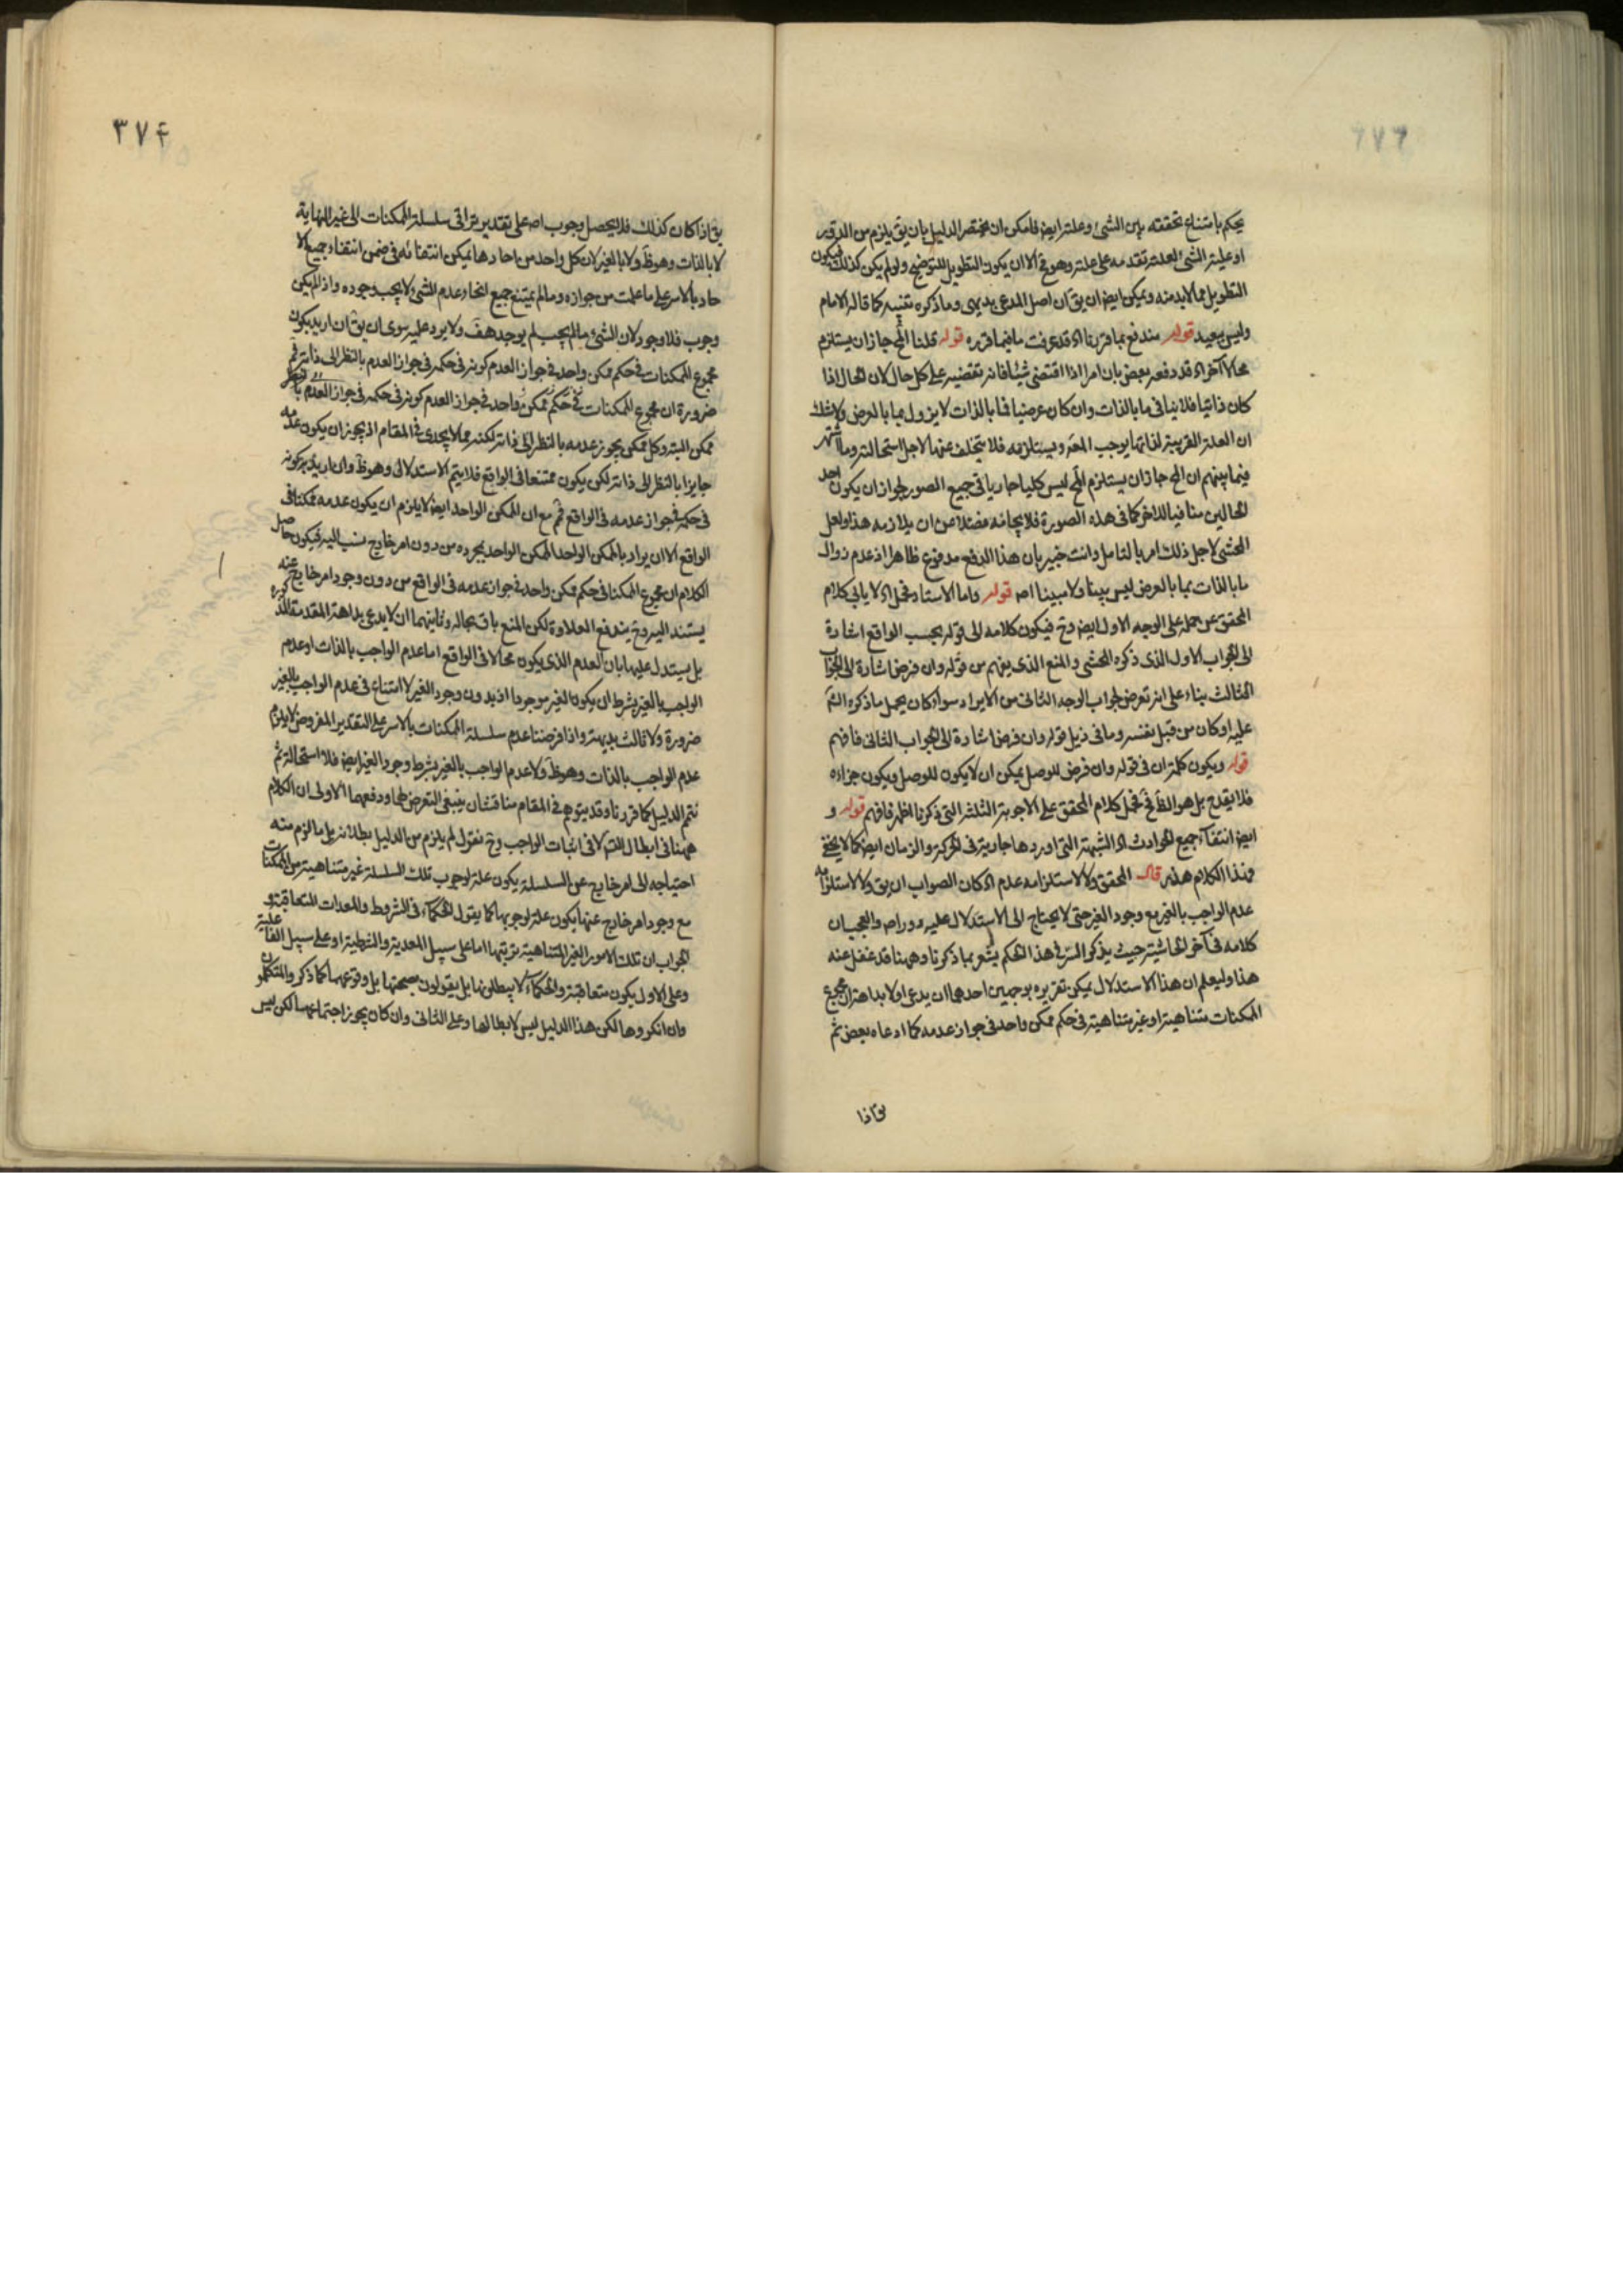 يحكم بامتناع تحققه بين الشئ وعلته ايضا فامكن ان يختصر الدليل بان يق يلزم من الدور
او علية الشئ لعلته تقدمه على علته وهو مح الا ان يكون التطويل للتوضيح ولو لم يكن كذلك فيكون
التطويل مما لا بد منه ويمكن ايضا ان يق ان اصل المدعى بديهى وما ذكره تنبيه كما قاله الامام
وليس ببعيد قوله مندفع بما قررنا اه قد عرفت ما فيما قرره قوله قلنا المح جاز ان يستلزم
محالا آخر اه قد دفعه بعض بان امرا اذا اقتضى شيئا فانه تقتضيه على كل حال لان المحال اذا
كان ذاتيا فلا ينافى ما بالذات وان كان عرضيا فما بالذات لا يزول بما بالعرض ولا شك
ان العلة القريبة لذاتها يوجب المعلول ويستلزمه فلا يتخلف عنها لاجل استحالته وما اشتهر
فيما بينهم ان المح جاز ان يستلزم المح ليس كليا جاريا فى جميع الصور لجواز ان يكون احد
المحالين منافيا للاخر كما فى هذه الصورة فلا يجامعه فضلا من ان يلازمه هذا ولعل
المحشى لاجل ذلك امر بالتامل وانت خبير بان هذا الدفع مدفوع ظاهرا اذ عدم زوال
ما بالذات بما بالعرض ليس بينا ولا مبينا اه قوله واما الاستاد فحمل اه لا يابى كلام
المحقق عن حمله على الوجه الاول ايضا وح فيكون كلامه الى قوله بحسب الواقع اشارة
الى الجواب الاول الذى ذكره المحشى والمنع الذى يفهم من قوله وان فرض اشارة الى الجواب
الثالث بناء على انه تعرض لجواب الوجه الثانى من الايراد سواء كان يحمل ما ذكره الش
عليه او كان من قبل نفسه وما فى ذيل قوله وان فرض اشارة الى الجواب الثانى فافهم
قوله ويكون كلمة ان فى قوله وان فرض للوصل يمكن ان لا يكون للوصل ويكون جزاءه
فلا يقدح بل هو الظ فح فحمل كلام المحقق على الاجوبة الثلثة التى ذكرنا اظهر فافهم قوله و
ايضا انتفاء جميع الحوادث اه الشبهة التى اوردها جارية فى الحركة والزمان ايضا كما لا يخفى
فهذا الكلام هذر قال المحقق ولا لاستلزامه عدم اه كان الصواب ان يق ولا لاستلزامه
عدم الواجب بالغير مع وجود الغير حتى لا يحتاج الى الاستدلال عليه دورا اه والعجب ان
كلامه فى آخر الحاشية حيث يذكر السر فى هذا الحكم يشعر بما ذكرنا وههنا قد غفل عنه
هذا وليعلم ان هذا الاستدلال يمكن تقريره بوجهين احدهما ان يدعى اولا بداهة ان مجموع
الممكنات متناهية او غير متناهية فى حكم ممكن واحد فى جواز عدمه كما ادعاه بعض ثم
يق اذا
٣٧٤
يق اذا كان كذلك فلا يحصل وجوب اصلا على تقدير تراقى سلسلة الممكنات الى غير النهاية
لا بالذات وهو ظ ولا بالغير لان كل واحد من احادها يمكن انتفائه فى ضمن انتفاء جميع الا
حاد بالاسر على ما علمت من جوازه وما لم يمتنع جميع انحاء عدم الشئ لا يجب وجوده واذ لم يكن
وجوب فلا وجود لان الشئ ما لم يجب لم يوجد هف ولا يرد عليه سوى ان يق ان اريد بكون
مجموع الممكنات فى حكم ممكن واحد فى جواز العدم كونه فى حكمه فى جواز العدم بالنظر الى ذاته فم
ضرورة ان مجموع الممكنات فى حكم ممكن واحد فى جواز العدم كونه فى حكمه فى جواز العدم بالنظر
ممكن البتة وكل ممكن يجوز عدمه بالنظر الى ذاته لكنه مما لا يجدى فى المقام اذ يجوز ان يكون عدمه
جايزا بالنظر الى ذاته لكن يكون ممتنعا فى الواقع فلا يتم الاستدلال وهو ظ وان اريد به كونه
فى حكمه فى جواز عدمه فى الواقع فم مع ان الممكن الواحد ايضا لا يلزم ان يكون عدمه ممكنا فى
الواقع الا ان يراد بالممكن الواحد الممكن الواحد بمجرده من دون امر خارج ينسب اليه فيكون حاصل
الكلام ان مجموع الممكنات فى حكم ممكن واحد فى جواز عدمه فى الواقع من دون وجود امر خارج عنه
يستند اليه وح يندفع العلاوة لكن المنع باق بحاله وثانيهما ان لا يدعى بداهة المقدمة المذكورة
بل يستدل عليها بان العدم الذى يكون محالا فى الواقع اما عدم الواجب بالذات او عدم
الواجب بالغير بشرط ان يكون الغير موجودا اذ بدون وجود الغير لا امتناع فى عدم الواجب بالغير
ضرورة ولا ثالث بديهة واذا فرضنا عدم سلسلة الممكنات بالاسر على التقدير المفروض لا يلزم
عدم الواجب بالذات وهو ظ ولا عدم الواجب بالغير بشرط وجود الغير ايضا فلا استحالة ثم
نتم الدليل كما قررنا وقد يتوهم فى المقام مناقشتان ينبغى التعرض لهما ودفعهما الاولى ان الكلام
ههنا فى ابطال التس لا فى اثبات الواجب وح نقول لم يلزم من الدليل بطلانه بل ما لزم منه
احتياجه الى امر خارج عن السلسلة يكون علة لوجوب تلك السلسلة غير متناهية من الممكنات
مع وجود امر خارج عنها يكون علة لوجوبها كما يقول الحكماء فى الشروط والمعدات المتعاقبة و
الجواب ان تلك الامور الغير المتناهية ترتبها اما على سبيل المعدية والشرطية او على سبيل الفاعلية
وعلى الاول يكون متعاقبة والحكماء لا يبطلونها بل يقولون بصحتها بل وقوعها كما ذكر والمتكلمون
وان انكروها لكن هذا الدليل ليس لابطالها وعلى الثانى وان كان يجوز اجتماعها لكن ليس